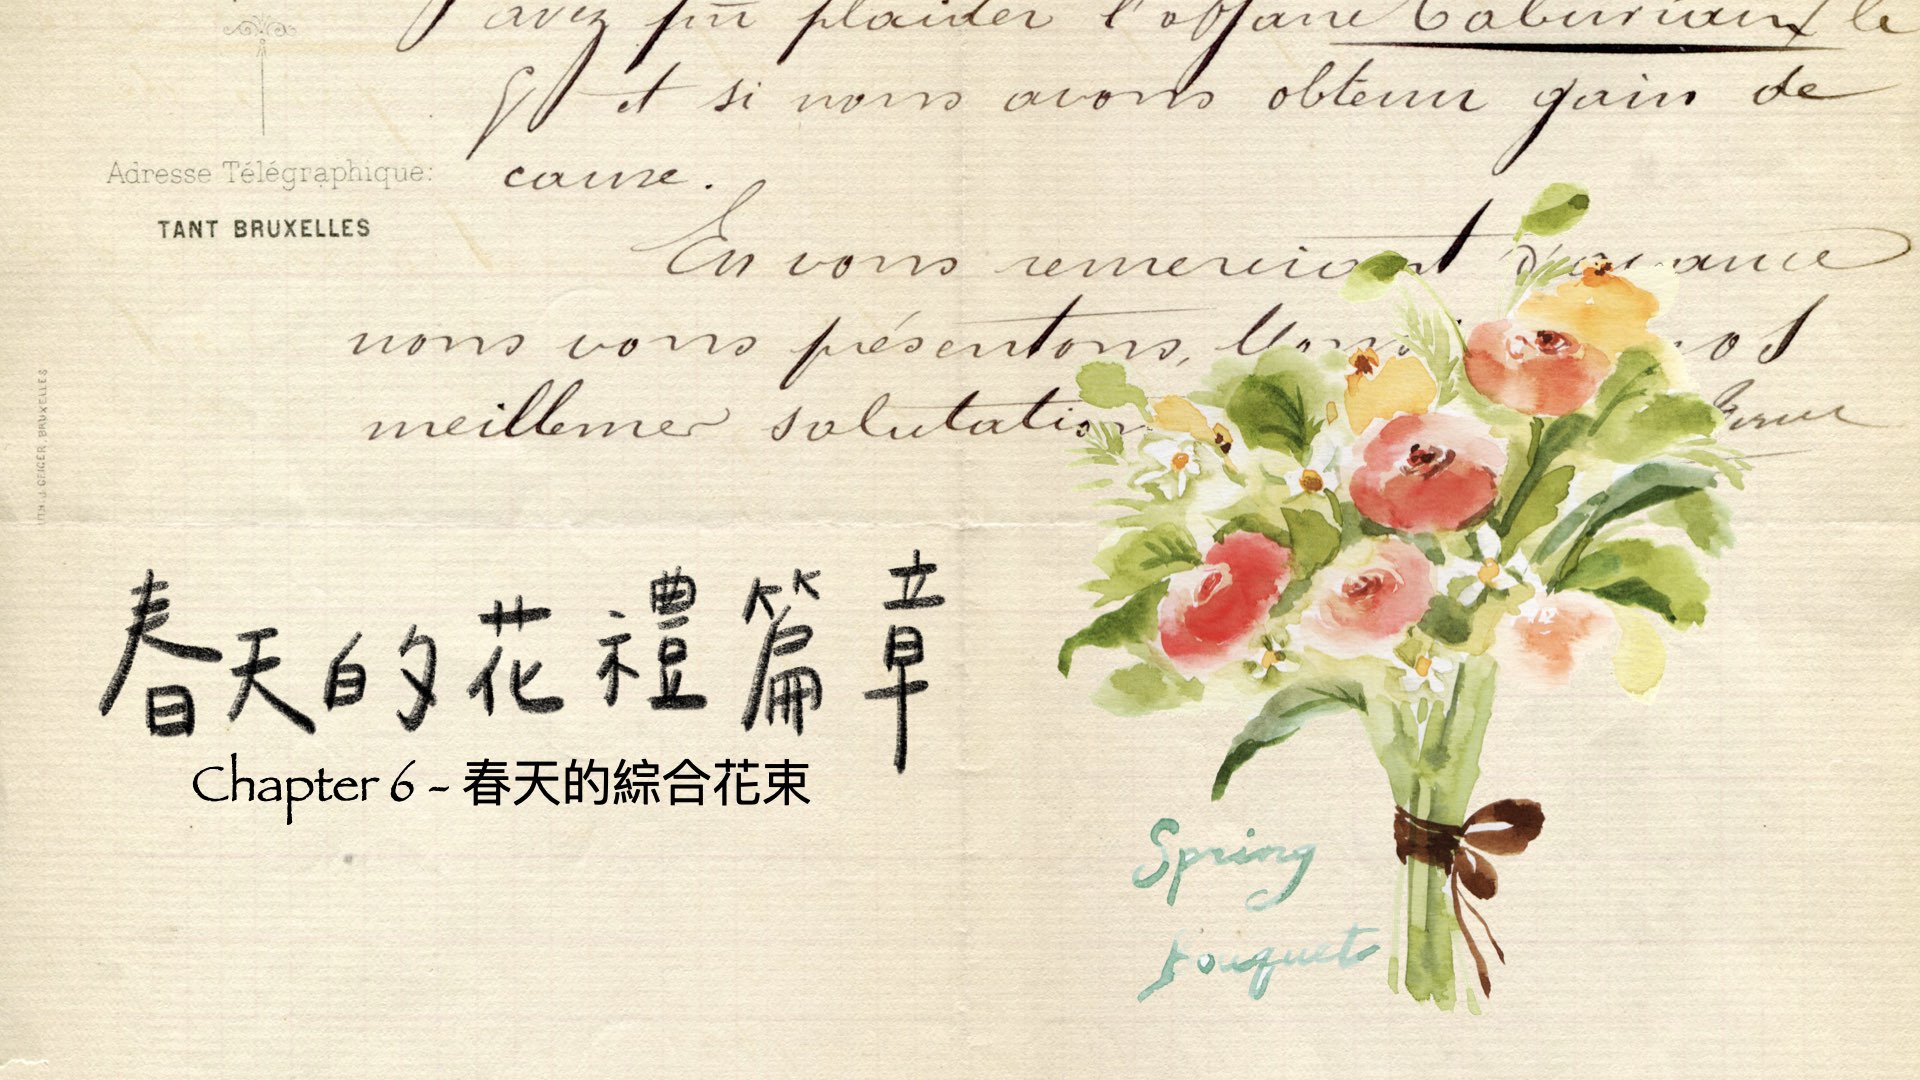 avez pu plaider l'affaire le
et si nous avons obtenu gain de
cause.
Adresse Télégraphique:
TANT BRUXELLES
En vous remerciant d'avance
nous vous présentons, nos
meilleures salutations
LITH. J. GEIGER, BRUXELLES
春天的花禮篇章
Chapter 6 - 春天的綜合花束
Spring
Bouquet